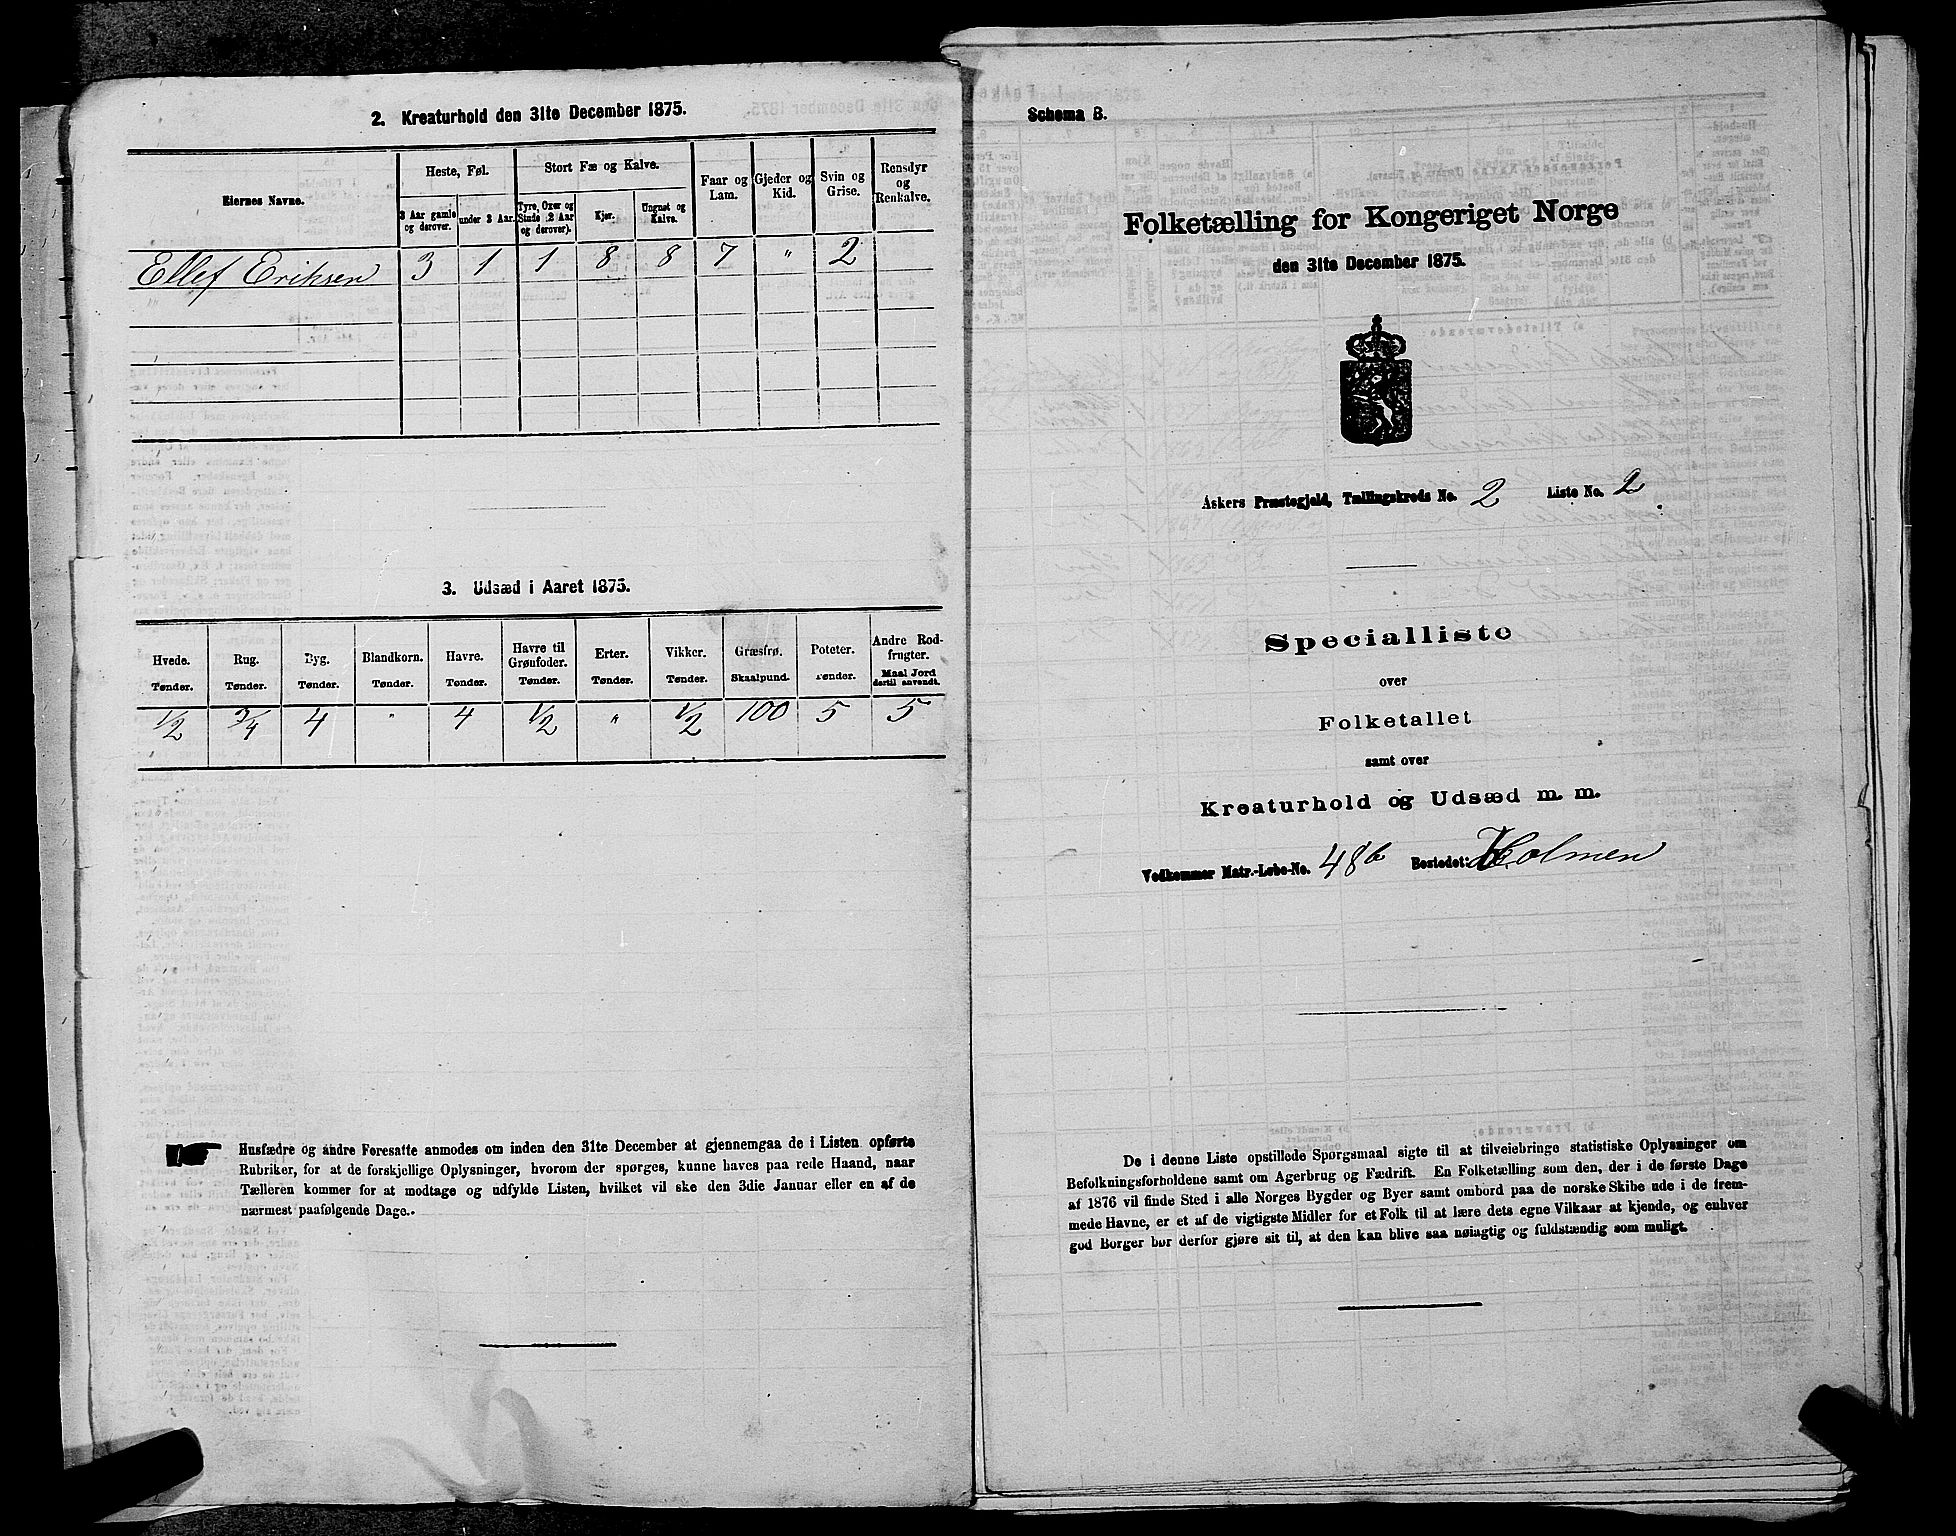 2. Kreaturhold den 31te December 1875.
Eiernes Navne.
Heste, Føl.
3 Aar gamle og derover.
under 3 Aar.
Stort Fæ og Kalve.
Tyre, Oxer og Stude (2 Aar og derover).
Kjør.
Ungnøt og Kalve.
Faar og Lam.
Gjeder og Kid.
Svin og Grise.
Rensdyr og Renkalve.
Ellef Eriksen 3 1 1 8 8 7 " 2
3. Udsæd i Aaret 1875.
Hvede. Tønder.
Rug. Tønder.
Byg. Tønder.
Blandkorn. Tønder.
Havre. Tønder.
Havre til Grønfoder. Tønder.
Erter. Tønder.
Vikker. Tønder.
Græsfrø. Skaalpund.
Poteter. Tønder.
Andre Rodfrugter. Maal Jord dertil anvendt.
1/2 3/4 4 " 4 1/2 " 1/2 100 5 5
Husfædre og andre Foresatte anmodes om inden den 31te December at gjennemgaa de i Listen opførte
Rubriker, for at de forskjellige Oplysninger, hvorom der spørges, kunne haves paa rede Haand, naar
Tælleren kommer for at modtage og udfylde Listen, hvilket vil ske den 3die Januar eller en af de
nærmest paafølgende Dage.
Schema B.
Folketælling for Kongeriget Norge
den 31te December 1875.
Askers Præstegjeld, Tællingskreds No. 2 Liste No. 2
Specialliste
over
Folketallet
samt over
Kreaturhold og Udsæd m. m.
Vedkommer Matr.-Løbe-No. 48b Bostedet: Holmen
De i denne Liste opstillede Spørgsmaal sigte til at tilveiebringe statistiske Oplysninger om
Befolkningsforholdene samt om Agerbrug og Fædrift. En Folketælling som den, der i de første Dage
af 1876 vil finde Sted i alle Norges Bygder og Byer samt ombord paa de norske Skibe ude i de frem-
mede Havne, er et af de vigtigste Midler for et Folk til at lære dets egne Vilkaar at kjende, og enhver
god Borger bør derfor gjøre sit til, at den kan blive saa nøiagtig og fuldstændig som muligt.